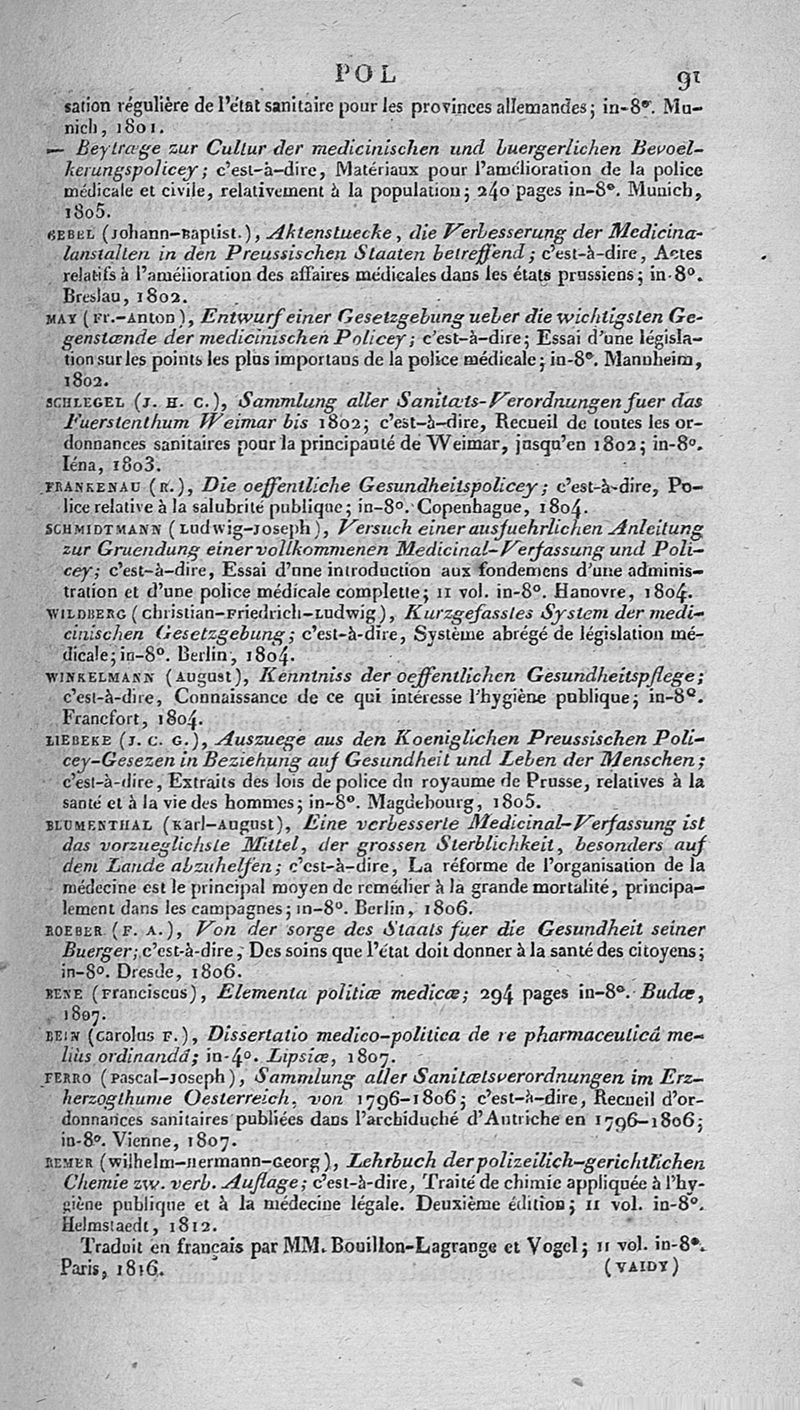 POL 91
sation régulière de l'état sanitaire pour les provinces allemandes; in-8°. Mu-
nich, 1801.
— Beytræge zur Cultur der medicinischen und buergerlichen Bevoël-
kerungspolicey; c'est-à-dire, Matériaux pour l'amélioration de la police
médicale et civile, relativement à la population; 240 pages in-8°. Munich,
1805.
GEBEL (Johann-Baptist.), Aktenstuecke, die Verbesserung der Medicina-
lanstalten in den Preussischen Staaten betreffend; c'est-à-dire, Actes
relatifs à l'amélioration des affaires médicales dans les états prussiens; in-8°.
Breslau, 1802.
MAY (Fr.-Anton), Entwurf einer Gesetzgebung ueber die wichtigsten Ge-
genstænde der medicinischen Policey; c'est-à-dire; Essai d'une législa-
tion sur les points les plus importans de la police médicale; in-8°. Mannheim,
1802.
SCHLEGEL (J. H. C.), Sammlung aller Sanitæts-Verordnungen fuer das
Fuerstenthum Weimar bis 1802; c'est-à-dire, Recueil de toutes les or-
donnances sanitaires pour la principauté de Weimar, jusqu'en 1802; in-8°.
Iéna, 1803.
FRANKENAU (R.), Die oeffentliche Gesundheitspolicey; c'est-à-dire, Po-
lice relative à la salubrité publique; in-8°. Copenhague, 1804.
SCHMIDTMANN (Ludwig-Joseph), Versuch einer ausfuehrlichen Anleitung
zur Gruendung einer vollkommenen Medicinal-Verfassung und Poli-
cey; c'est-à-dire, Essai d'une introduction aux fondemens d'une adminis-
tration et d'une police médicale complette; II vol. in-8°. Hanovre, 1804.
WILDBERG (Christian-Friedrich-Ludwig), Kurzgefasstes System der medi-
cinischen Gesetzgebung; c'est-à-dire, Système abrégé de législation mé-
dicale; in-8°. Berlin, 1804.
WINKELMANN (August), Kenntniss der oeffentlichen Gesundheitspflege;
c'est-à-dire, Connaissance de ce qui intéresse l'hygiène publique; in-8°.
Francfort, 1804.
LIEBEKE (J. C. G.), Auszuege aus den Koeniglichen Preussischen Poli-
cey-Gesezen in Beziehung auf Gesundheit und Leben der Menschen;
c'est-à-dire, Extraits des lois de police du royaume de Prusse, relatives à la
santé et à la vie des hommes; in-8°. Magdebourg, 1805.
BLUMENTHAL (Karl-August), Eine verbesserte Medicinal-Verfassung ist
das vorzueglichste Mittel, der grossen Sterblichkeit, besonders auf
dem Lande abzuhelfen; c'est-à-dire, La réforme de l'organisation de la
médecine est le principal moyen de remédier à la grande mortalité, principa-
lement dans les campagnes; in-8°. Berlin, 1806.
ROEBER (F. A.), Von der sorge des Staats fuer die Gesundheit seiner
Buerger; c'est-à-dire, Des soins que l'état doit donner à la santé des citoyens;
in-8°. Dresde, 1806.
BENE (Franciscus), Elementa politiæ medicæ; 294 pages in-8°. Budæ,
1807.
BEIN (Carolus F.), Dissertatio medico-politica de re pharmaceuticâ me-
liùs ordinandâ; in-4°. Lipsiæ, 1807.
FERRO (Pascal-Joseph), Sammlung aller Sanitætsverordnungen im Erz-
herzogthume Oesterreich, von 1796-1806; c'est-à-dire, Recueil d'or-
donnances sanitaires publiées dans l'archiduché d'Autriche en 1796-1806;
in-8°. Vienne, 1807.
REMER (Wilhelm-Hermann-Georg), Lehrbuch der polizeilich-gerichtlichen
Chemie zw. verb. Auflage; c'est-à-dire, Traité de chimie appliquée à l'hy-
giène publique et à la médecine légale. Deuxième édition; II vol. in-8°.
Helmstaedt, 1812.
Traduit en français par MM. Bouillon-Lagrange et Vogel; II vol. in-8°.
Paris, 1816. (VAIDY)